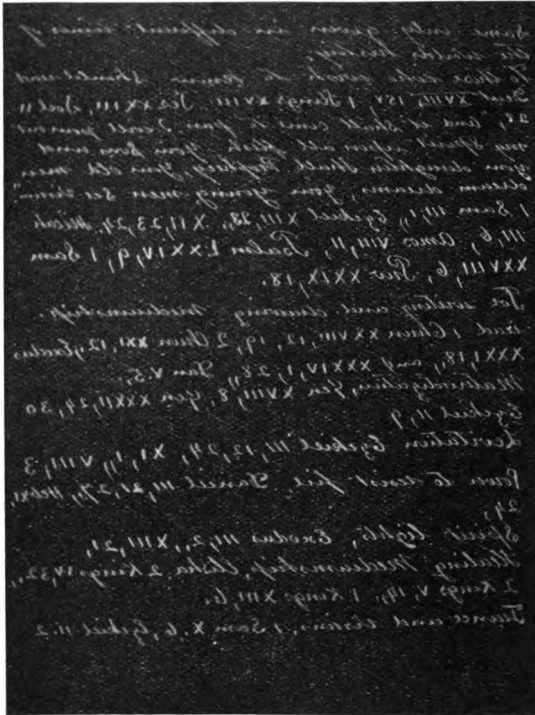 same only given in different times of
the worlds history.
To those who wish to know should read
Deut XVIII, 15v 1 Kings XVIII Jes XXIII, Joel II
28, and it shall come to pass I will pour out
my spirit upon all flesh your sons and
your daughters shall prophesy, your old men
dream dreams, your young men see visions
1 Sam III, 1, Ezekiel XIII, 23, XII, 23, 24, Micah
III, 6, Amos VIII, 11, Psalm LXXIV, 9, 1 Sam
XXVIII, 6, Prov XXIX, 18.
For writing and drawing mediumship.
read 1 Chron XXVIII, 12, 19, 2 Chron XXI, 12, Exodus
XXXI, 18, and XXXIV, 1, 28, Dan V.5.
Materialization, Gen XVIII, 8, Gen XXXII, 24, 30
Ezekiel II, 9
Levitation Ezekiel III, 12, 24, XI, 1, VIII, 3
Power to resist fire, Daniel III, 21, 27, Heb XI,
24,
Spirit lights, Exodus III, 2, XIII, 21,
Healing Mediumship, Elisha 2 Kings IV, 32,
2 Kings V, 14, 1 Kings XIII, 6.
Trance and visions, 1 Sam X.6, Ezekiel II.2